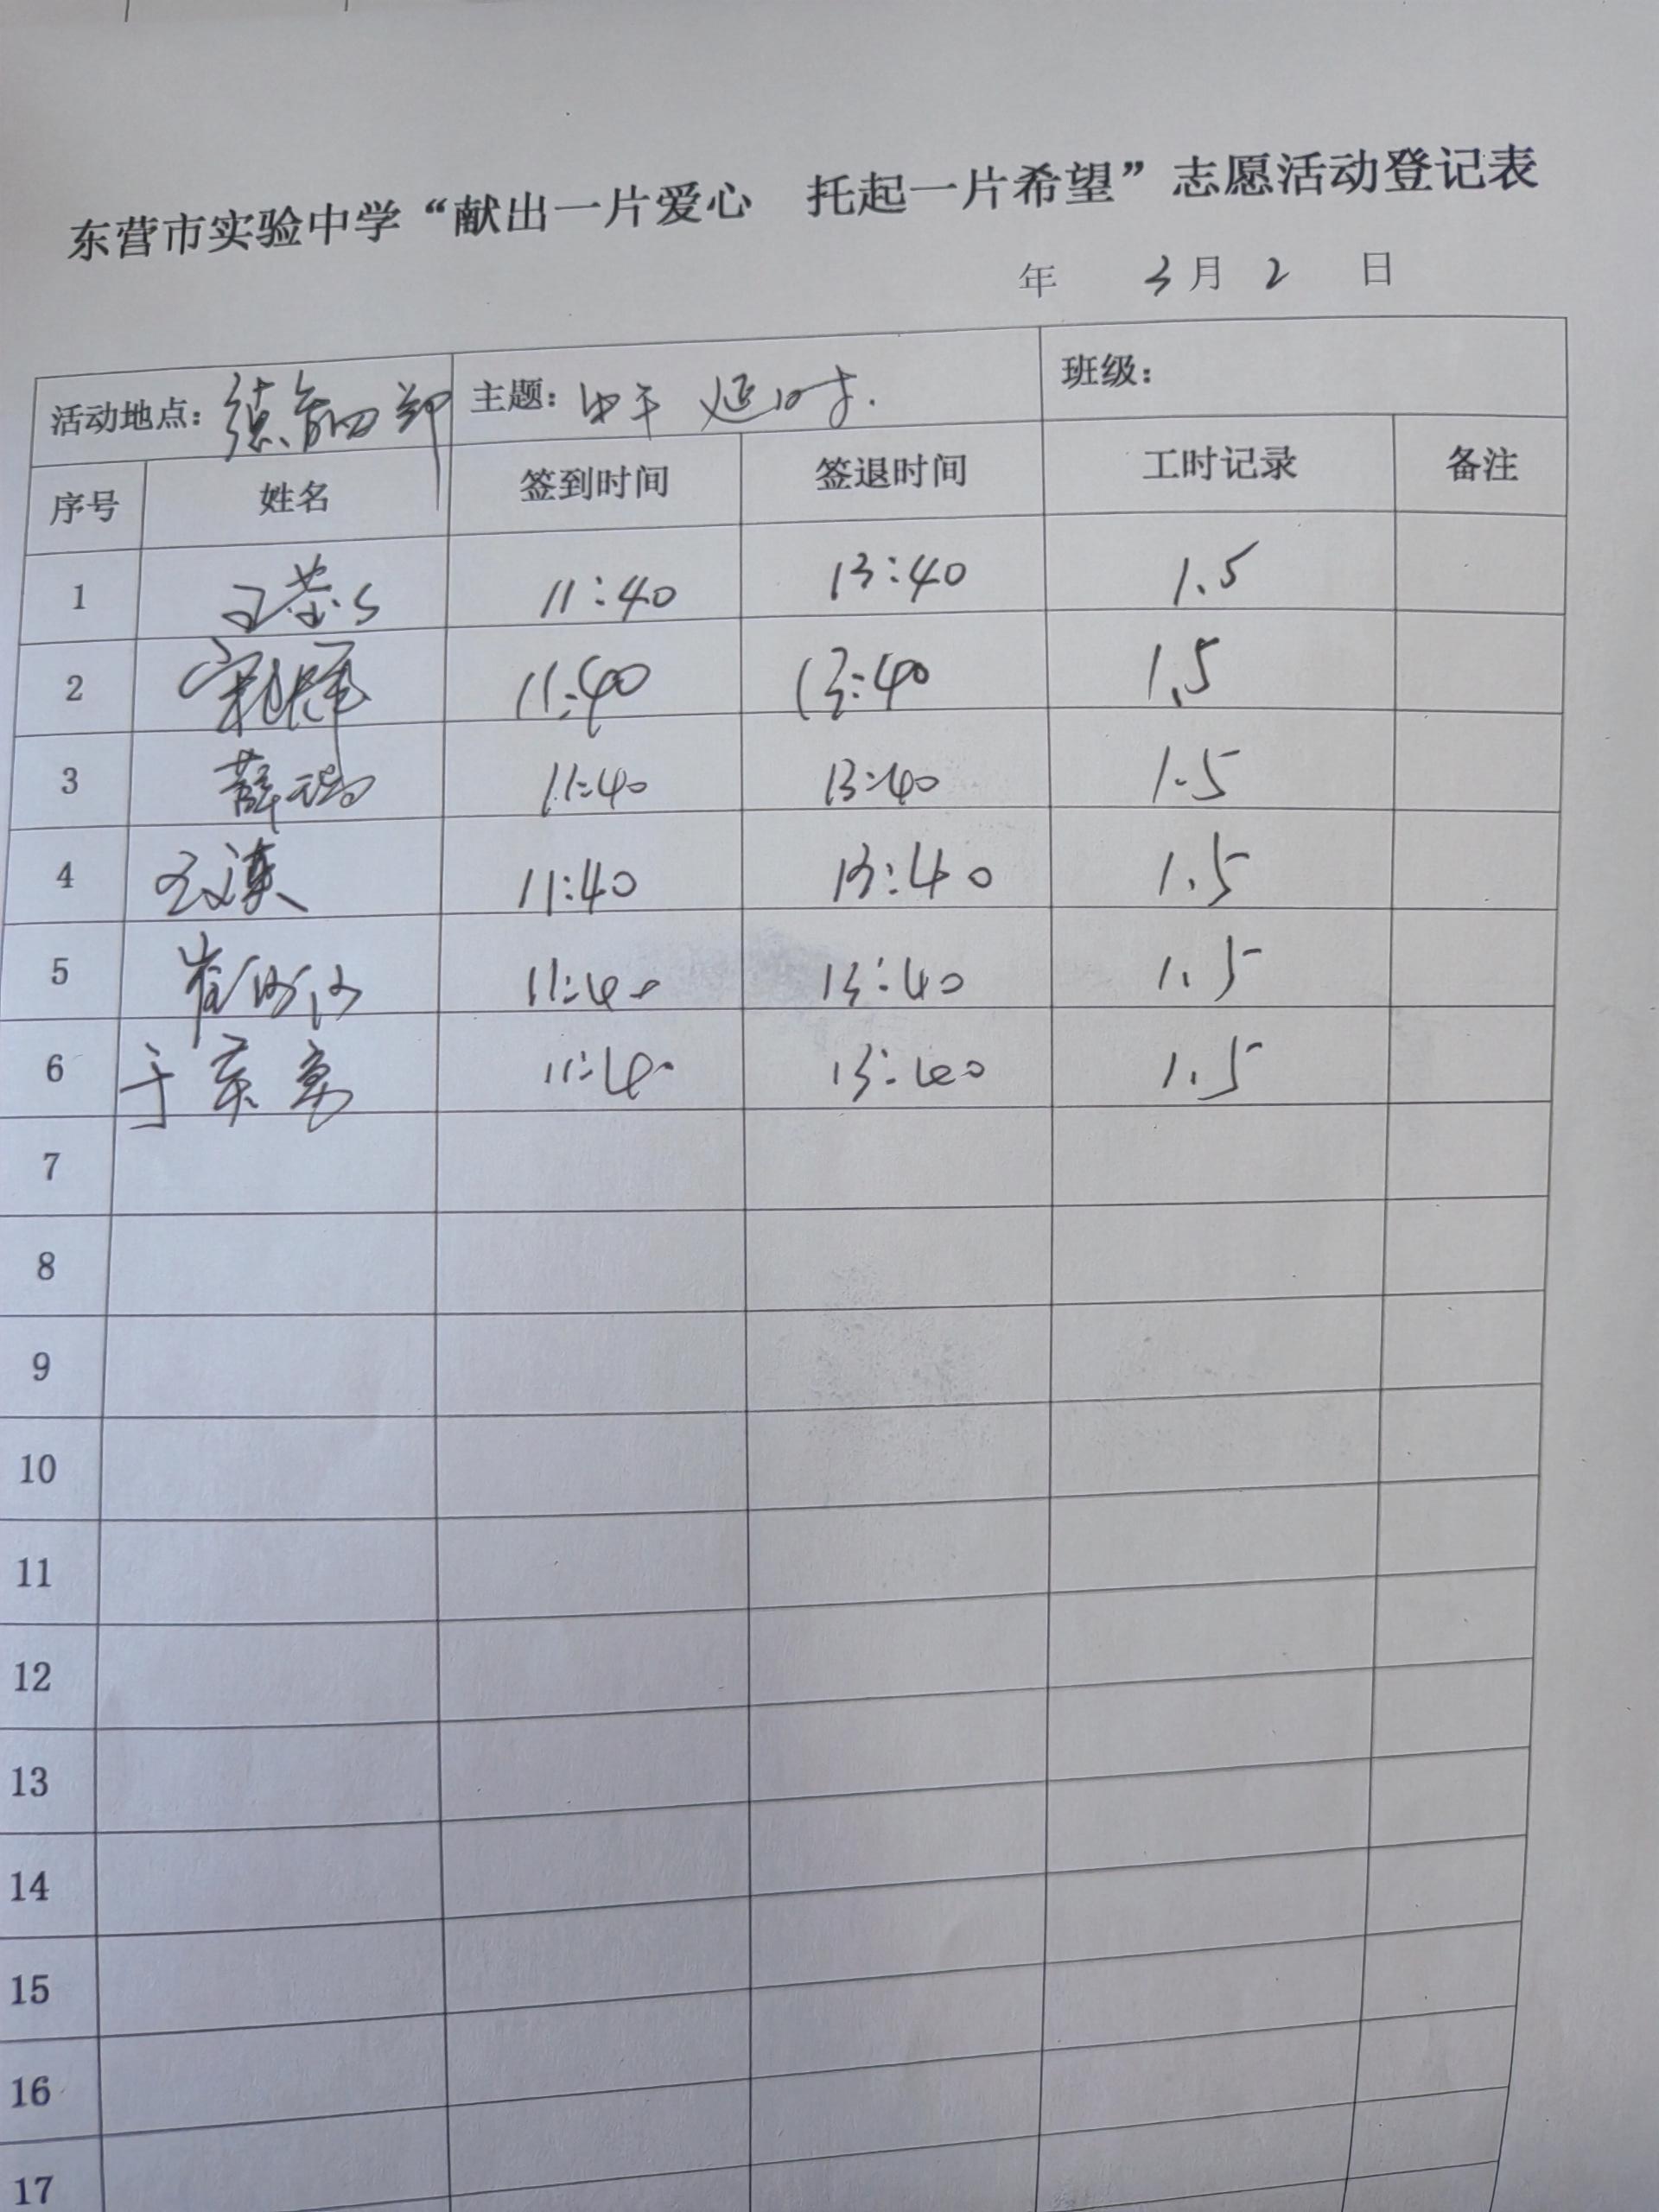 东营市实验中学“献出一片爱心 托起一片希望”志愿活动登记表
年 3月2 日
活动地点: 主题: 中午 延时. 班级:
序号 姓名 签到时间 签退时间 工时记录 备注
1 11:40 13:40 1.5
2 11:40 13:40 1.5
3 薛 11:40 13:40 1.5
4 11:40 13:40 1.5
5 崔 11:40 13:40 1.5
6 于 11:40 13:40 1.5
7
8
9
10
11
12
13
14
15
16
17